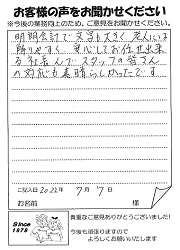 お客様の声をお聞かせください
※今後の業務向上のため、ご意見をお聞かせください。
明朗会計で文字も大きく老人には
解りやすく、安心してお任せ出来
る社長んで スタッフの皆さん
の対応も素晴らしかったです
ご記入日 2022年 7月 7日
お名前 様
Since
1978
貴重なご意見ありがとうございました!
今後も頑張りますので
よろしくお願いいたします